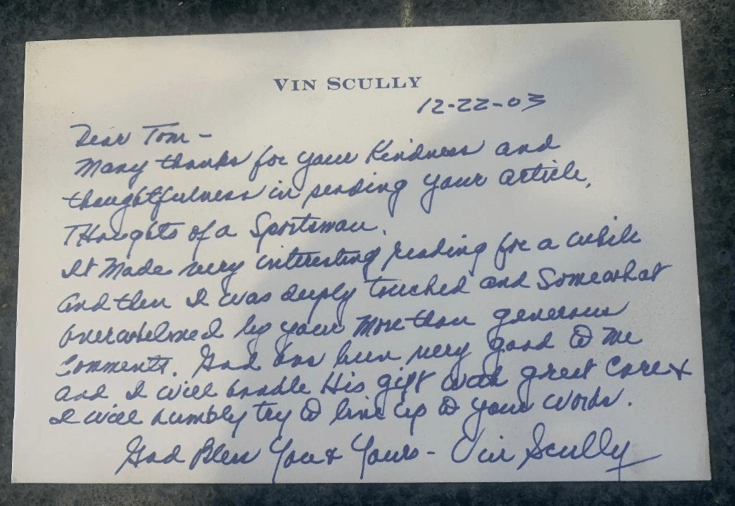 VIN SCULLY
12-22-03
Dear Tom -
Many thanks for your kindness and
thoughtfulness in sending your article,
Thoughts of a Sportsman.
It made very interesting reading for a while
and then I was deeply touched and somewhat
overwhelmed by your more than generous
comments. God has been very good to me
and I will handle His gift with great care &
I will humbly try to live up to your words.
God Bless You & Yours - Vin Scully